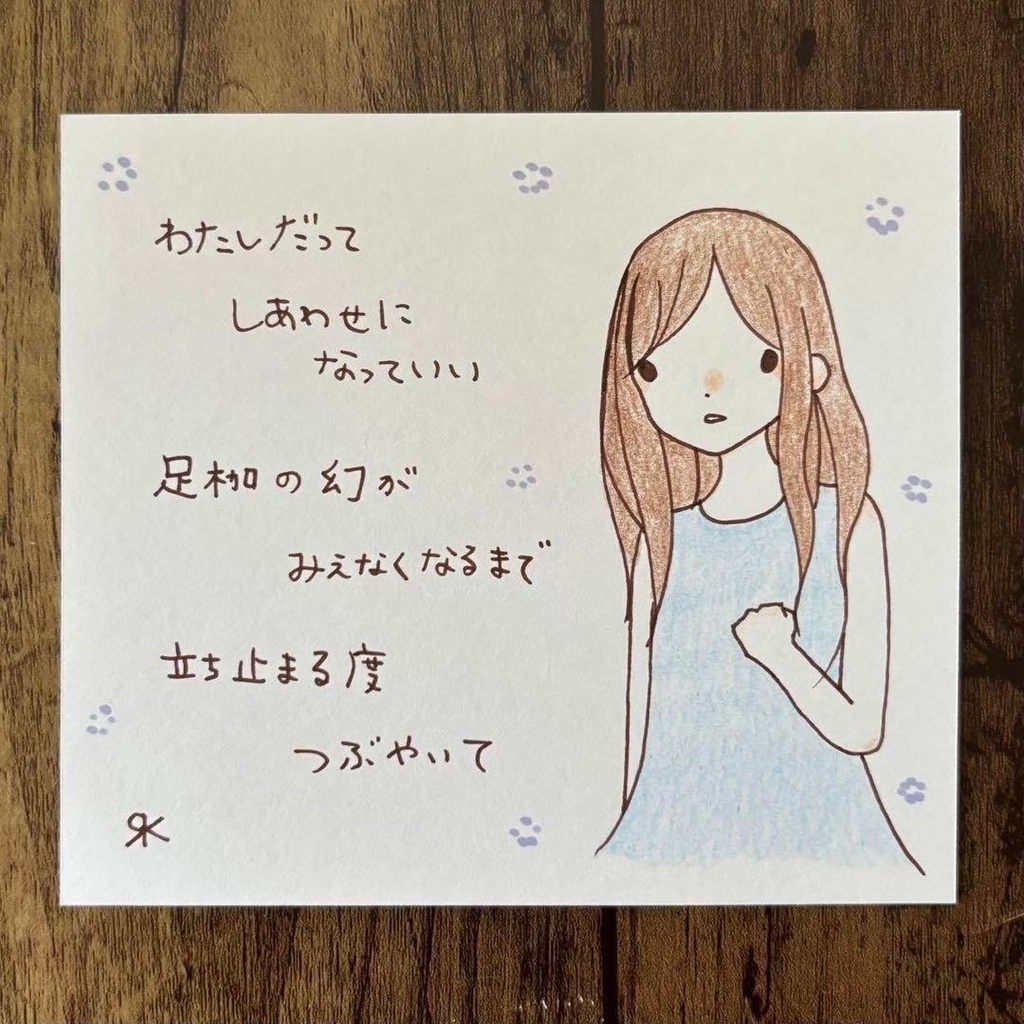 わたしだって
しあわせに
なっていい
足枷の幻が
みえなくなるまで
立ち止まる度
つぶやいて